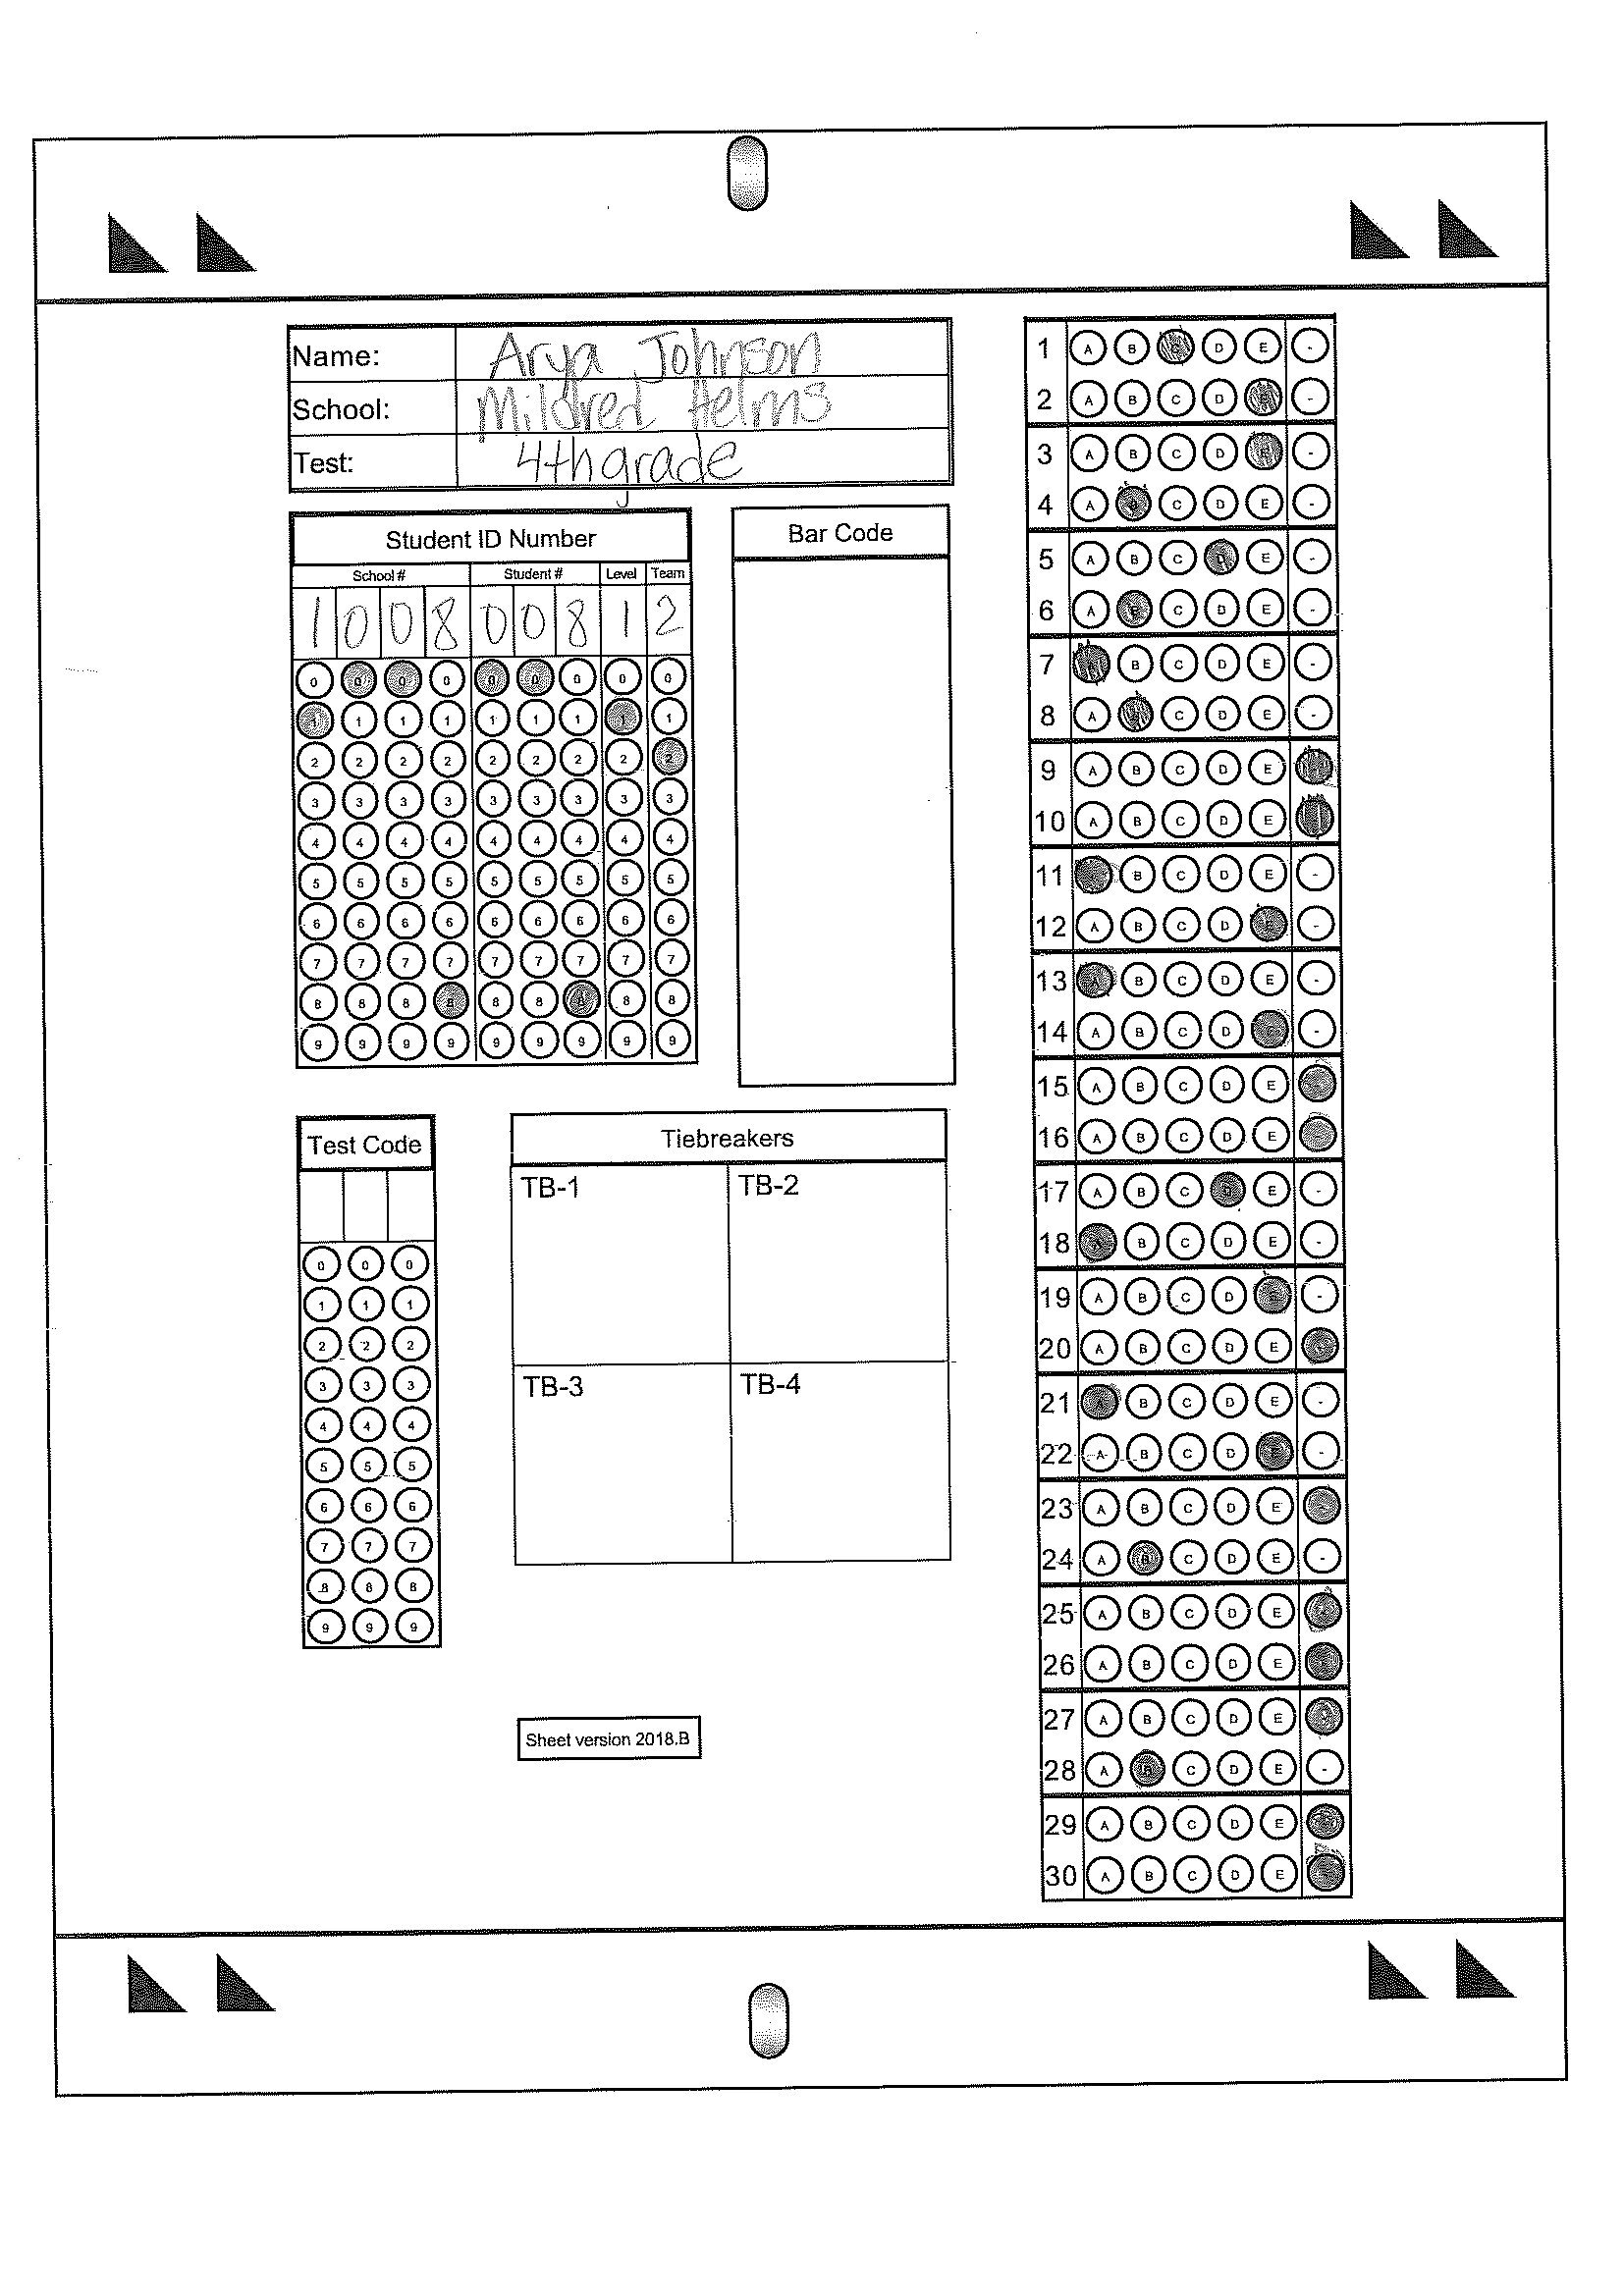 Name: Arya Johnson
School: Mildred Helms
Test: 4th grade
Student ID Number
School # Student # Level Team
1 0 0 8 0 0 8 1 2
0 0 0 0 0 0 0 0 0
1 1 1 1 1 1 1 1 1
2 2 2 2 2 2 2 2 2
3 3 3 3 3 3 3 3 3
4 4 4 4 4 4 4 4 4
5 5 5 5 5 5 5 5 5
6 6 6 6 6 6 6 6 6
7 7 7 7 7 7 7 7 7
8 8 8 8 8 8 8 8 8
9 9 9 9 9 9 9 9 9
Bar Code
Test Code
0 0 0
1 1 1
2 2 2
3 3 3
4 4 4
5 5 5
6 6 6
7 7 7
8 8 8
9 9 9
Tiebreakers
TB-1 TB-2
TB-3 TB-4
Sheet version 2018.B
1 A B C D E -
2 A B C D E -
3 A B C D E -
4 A B C D E -
5 A B C D E -
6 A B C D E -
7 A B C D E -
8 A B C D E -
9 A B C D E
10 A B C D E
11 B C D E -
12 A B C D E -
13 A B C D E -
14 A B C D E -
15 A B C D E -
16 A B C D E -
17 A B C D E -
18 A B C D E -
19 A B C D E -
20 A B C D E -
21 A B C D E -
22 A B C D E -
23 A B C D E -
24 A B C D E -
25 A B C D E -
26 A B C D E
27 A B C D E -
28 A B C D E -
29 A B C D E -
30 A B C D E -